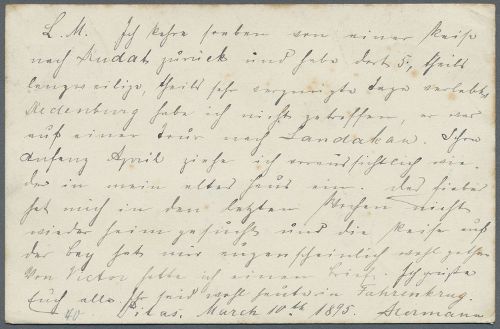 L. M. Ich kehre soeben von einer Reise
nach Kudat zurück und habe dort 5, theils
langweilige, theils sehr vergnügte Tage verlebt.
Aldenburg habe ich nicht getroffen, er war
auf einer Tour nach Sandakan. Schon
Anfang April ziehe ich voraussichtlich wie-
der in mein altes Haus ein. Das Fieber
hat mich in den letzten Wochen nicht
wieder heimgesucht und die Reise auf
der bay hat mir augenscheinlich wohl gethan.
Von Victor hatte ich einen Brief. Ich grüße
Euch alle. Ihr seid wohl heute in Fahrenkrug.
40 Pitas, March 10th 1895. Hermann